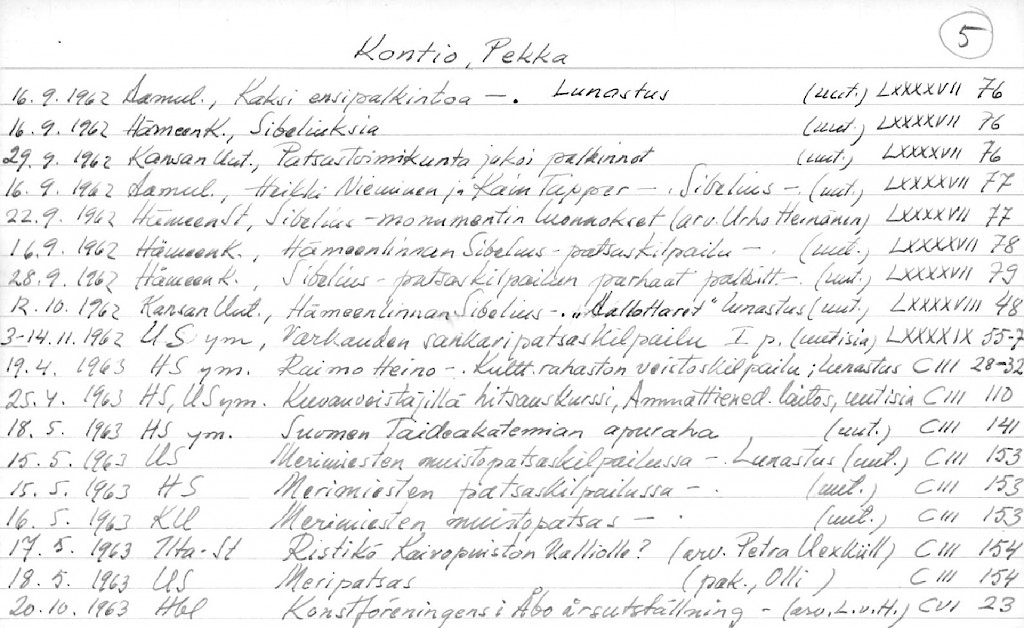 5
Kontio, Pekka
16.9.1962 Aamul., Kaksi ensipalkintoa —. Lunastus (uut.) LXXXXVII 76
16.9.1962 HämeenK., Sibeliuksia (uut.) LXXXXVII 76
29.9.1962 Kansan Uut., Patsastoimikunta jakoi palkinnot (uut.) LXXXXVII 76
16.9.1962 Aamul., Heikki Nieminen ja Kain Tapper —. Sibelius —. (uut.) LXXXXVII 77
22.9.1962 HämeenSt, Sibelius-monumentin luonnokset (arv. Urho Heinänen) LXXXXVII 77
16.9.1962 Hämeenk., Hämeenlinnan Sibelius-patsaskilpailu —. (uut.) LXXXXVII 78
28.9.1962 Hämeenk., Sibelius-patsaskilpailun parhaat palkitt —. (uut.) LXXXXVII 79
12.10.1962 Kansan Uut., Hämeenlinnan Sibelius-. "Aallottaret" lunastus (uut.) LXXXXVIII 48
3-14.11.1962 US ym, Varkauden sankaripatsaskilpailu I p. (uutisia) LXXXXIX 55-7
19.4. 1963 HS ym. Raimo Heino —. Kultt.rahaston veistoskilpailu; lunastus CIII 28-32
25.4. 1963 HS, US ym. Kuvanveistäjillä hitsauskurssi, Ammattiened. laitos, uutisia CIII 110
18.5. 1963 HS ym. Suomen Taideakatemian apuraha (uut.) CIII 141
15.5. 1963 US Merimiesten muistopatsaskilpailussa —. Lunastus (uut.) CIII 153
15.5. 1963 HS Merimiesten patsaskilpailussa —. (uut.) CIII 153
16.5. 1963 KU Merimiesten muistopatsas —. (uut.) CIII 153
17.5. 1963 Ilta-St Ristikö Kaivopuiston Kalliolle? (arv. Petra Uexküll) CIII 154
18.5. 1963 US Meripatsas (pak., Olli) CIII 154
20.10. 1963 Hbl Konstföreningens i Åbo årsutställning — (arv. L.v.H.) CVI 23